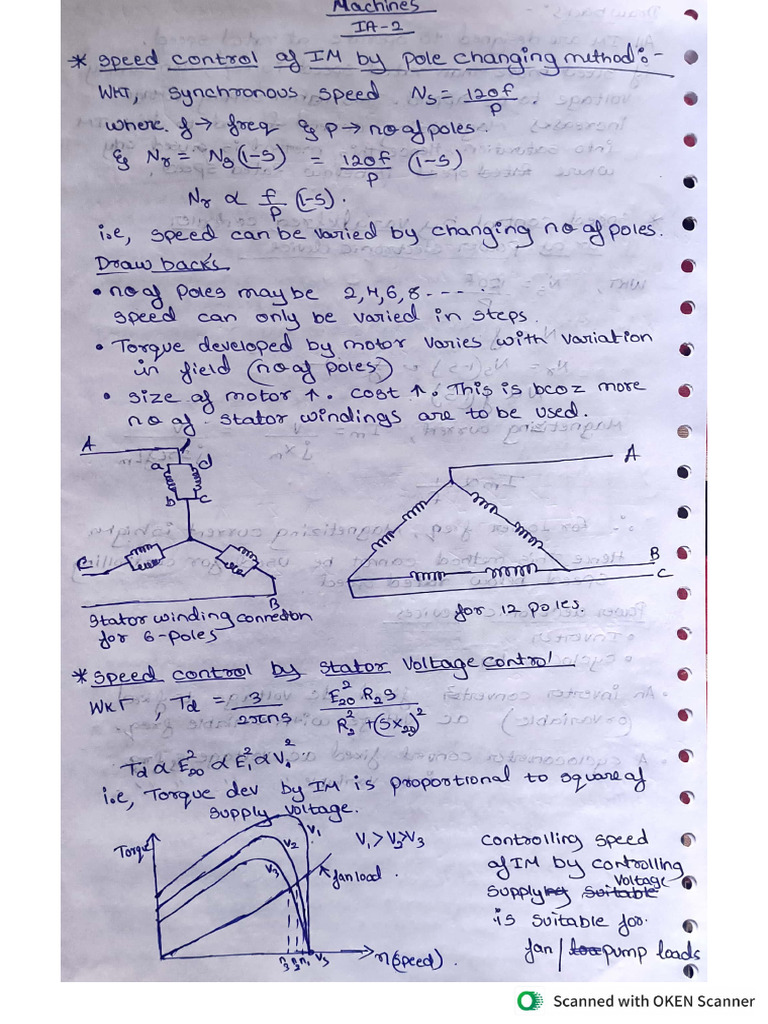 Machines
IA-2
* Speed control of IM by pole changing method:-
WKT, synchronous speed Ns = 120f/P
where f → freq & P → no of poles.
& Nr = Ns(1-s) = 120f/P (1-s)
Nr ∝ f/P (1-s).
i.e, speed can be varied by changing no of poles.
Draw backs
• no of Poles may be 2,4,6,8 - - - - .
speed can only be varied in steps.
• Torque developed by motor varies with variation
in field (no of poles)
• size of motor ↑. cost ↑. This is bcoz more
no of stator windings are to be used.
A
a
d
b
c
C
B
A
B
C
Stator winding connection
for 6-poles
for 12 poles.
* Speed control by stator voltage control
WKT, Td = 3/2πns E20² R2 s / R2² + (sX20)²
Td ∝ E20² ∝ E1² ∝ V1²
i.e, Torque dev by IM is proportional to square of
supply voltage.
Torque
V1
V2
V3
V1 > V2 > V3
fan load.
n(speed).
controlling speed
of IM by controlling
supply voltage
is suitable for
fan / pump loads
Scanned with OKEN Scanner